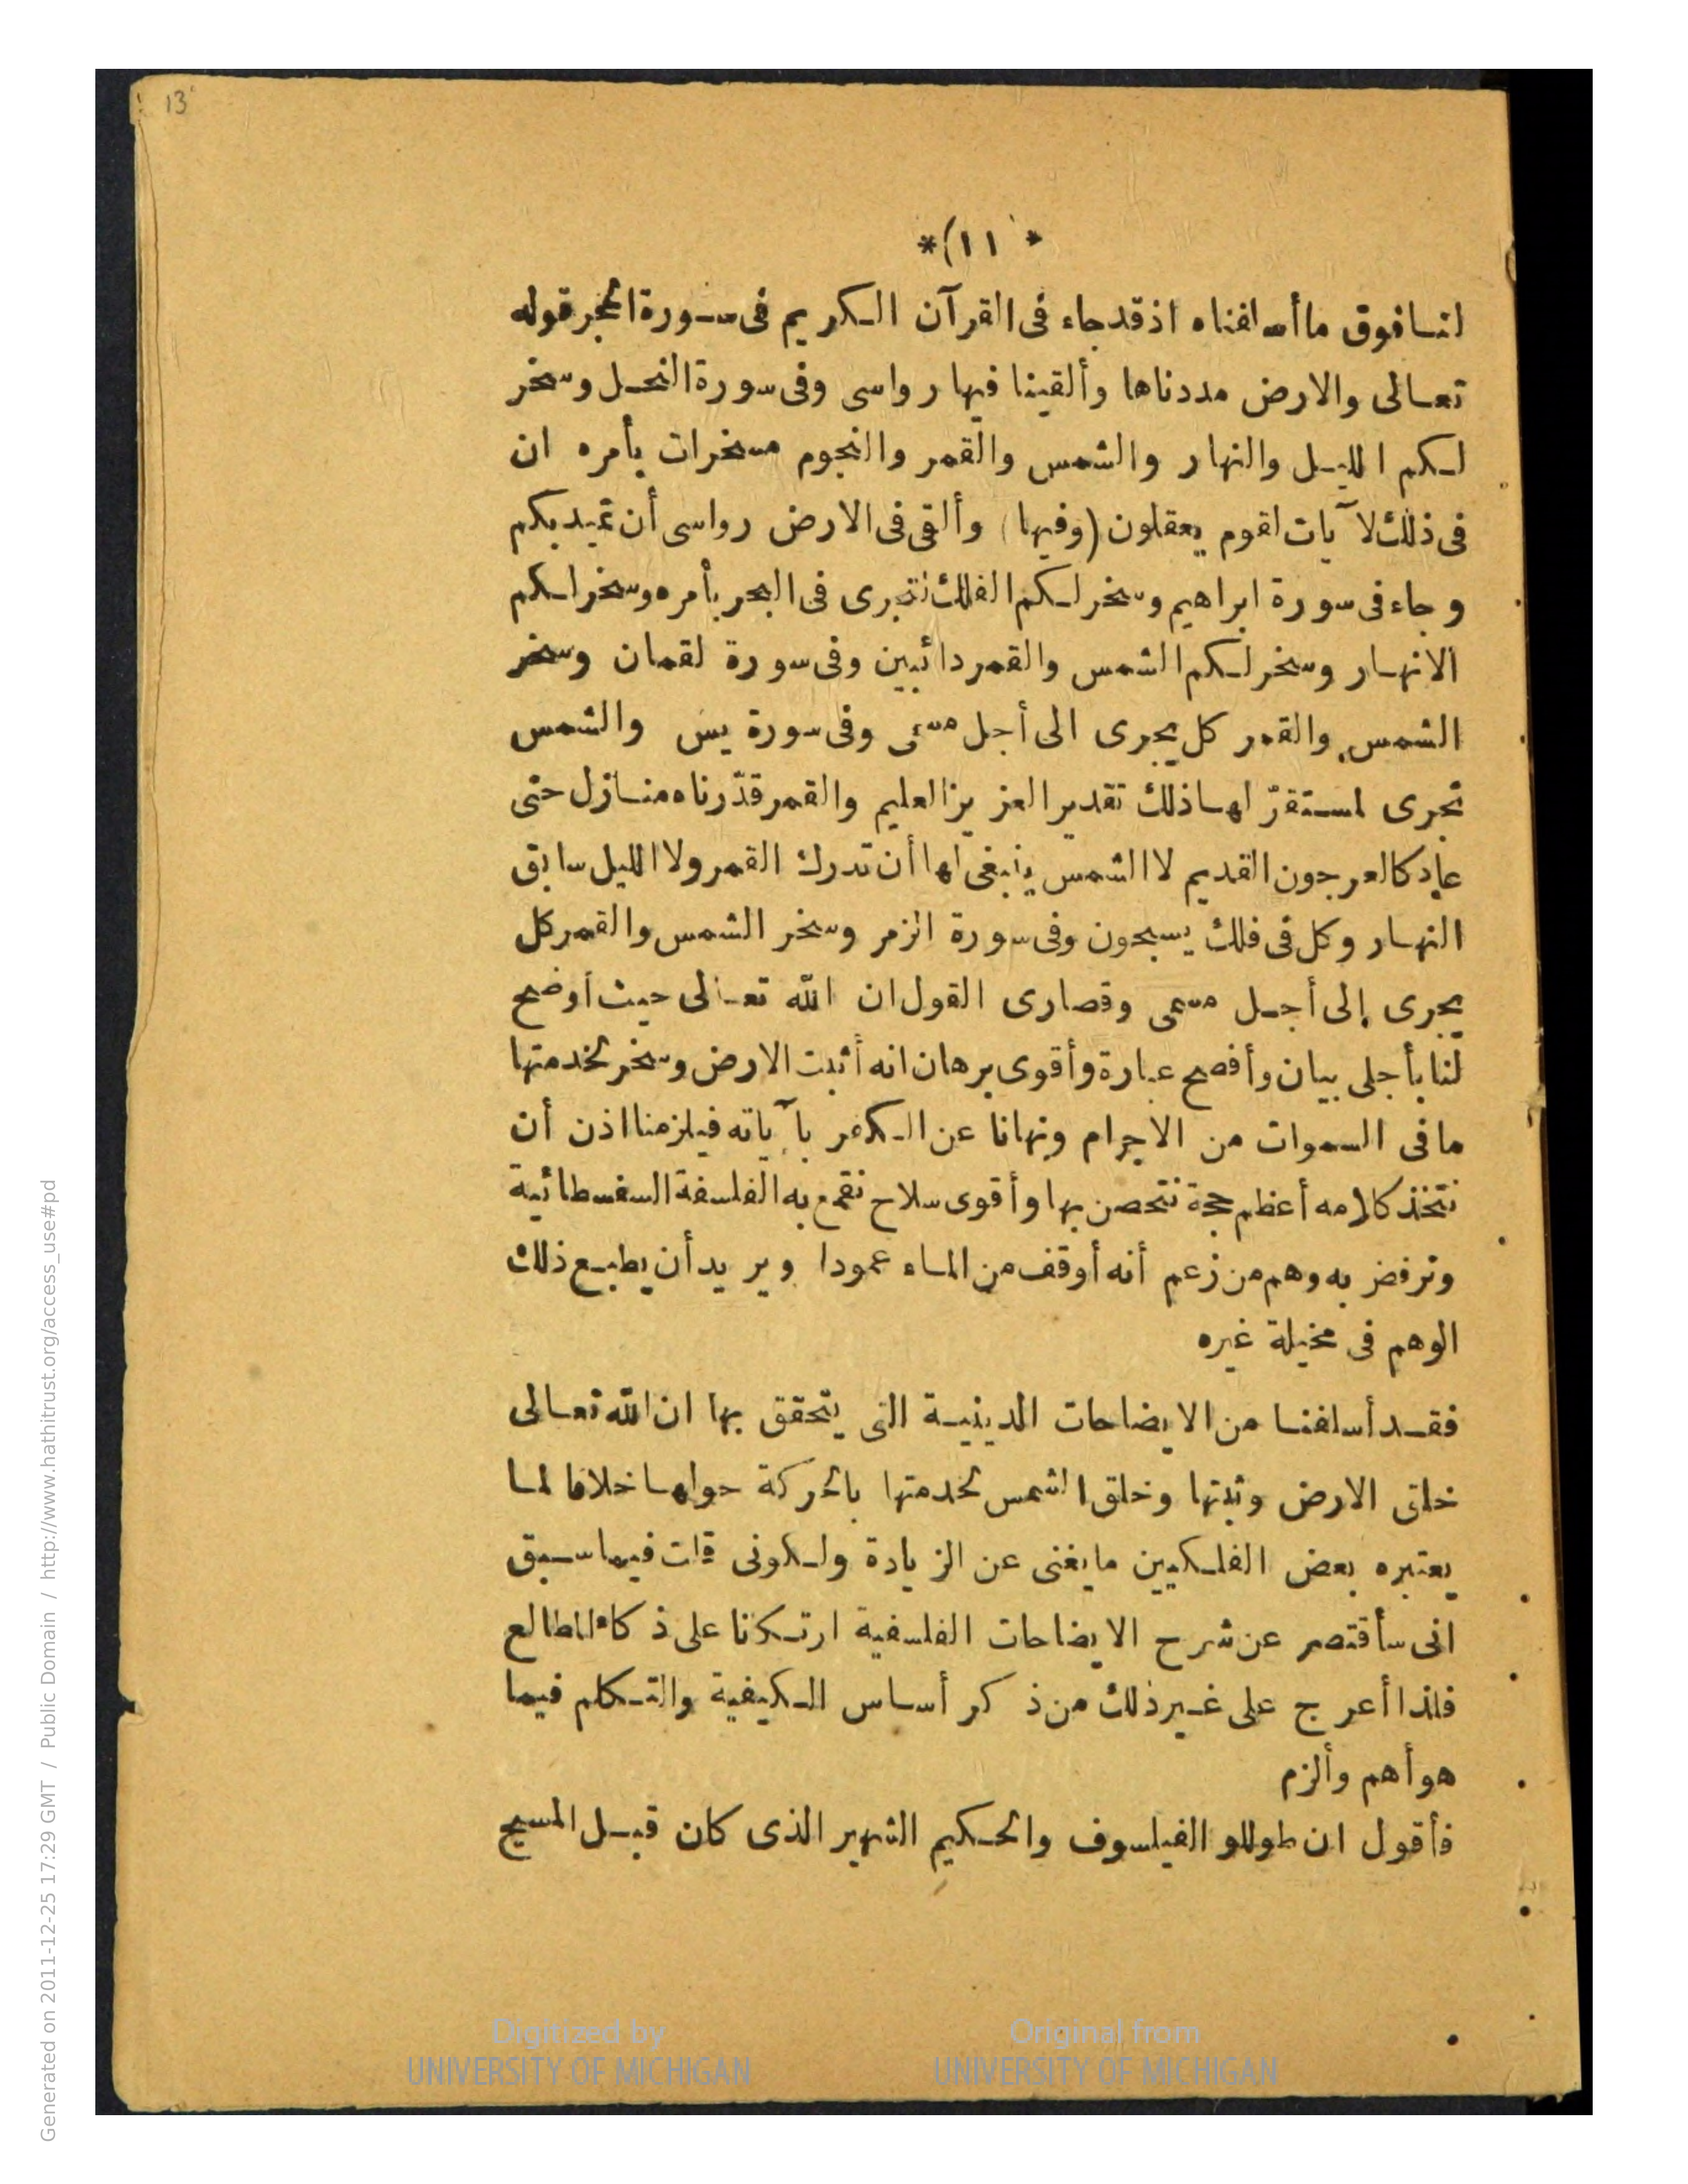 13
*(١١)*
لنا فوق ما أسلفناه اذ قد جاء فى القرآن الكريم فى سورة الحجر قوله
تعالى والارض مددناها وألقينا فيها رواسى وفى سورة النحل وسخر
لكم الليل والنهار والشمس والقمر والنجوم مسخرات بأمره ان
فى ذلك لآيات لقوم يعقلون (وفيها) وألقى فى الارض رواسى أن تميد بكم
وجاء فى سورة ابراهيم وسخر لكم الفلك لتجرى فى البحر بأمره وسخر لكم
الانهار وسخر لكم الشمس والقمر دائبين وفى سورة لقمان وسخر
الشمس والقمر كل يجرى الى أجل مسمى وفى سورة يس والشمس
تجرى لمستقرّ لها ذلك تقدير العزيز العليم والقمر قدّرناه منازل حتى
عاد كالعرجون القديم لا الشمس ينبغى لها أن تدرك القمر ولا الليل سابق
النهار وكل فى فلك يسبحون وفى سورة الزمر وسخر الشمس والقمر كل
يجرى إلى أجل مسمى وقصارى القول ان الله تعالى حيث أوضح
لنا بأجلى بيان وأفصح عبارة وأقوى برهان انه أثبت الارض وسخر لخدمتها
ما فى السموات من الاجرام ونهانا عن الكفر بآياته فيلزمنا اذن أن
نتخذ كلامه أعظم حجة نتحصن بها وأقوى سلاح نقمع به الفلسفة السفسطائية
ونرفض به وهم من زعم أنه أوقف من الماء عمودا ويريد أن يطبع ذلك
الوهم فى مخيلة غيره
فقد أسلفنا من الايضاحات الدينية التى يتحقق بها ان الله تعالى
خلق الارض وثبتها وخلق الشمس لخدمتها بالحركة حولها خلافا لما
يعتبره بعض الفلكيين ما يغنى عن الزيادة ولكونى قلت فيما سبق
انى سأقتصر عن شرح الايضاحات الفلسفية ارتكانا على ذكاء المطالع
فلذا أعرج على غير ذلك من ذكر أساس الكيفية والتكلم فيما
هو أهم وألزم
فأقول ان طوللو الفيلسوف والحكيم الشهير الذى كان قبل المسيح
Generated on 2011-12-25 17:29 GMT / Public Domain / http://www.hathitrust.org/access_use#pd
Digitized by
UNIVERSITY OF MICHIGAN
Original from
UNIVERSITY OF MICHIGAN